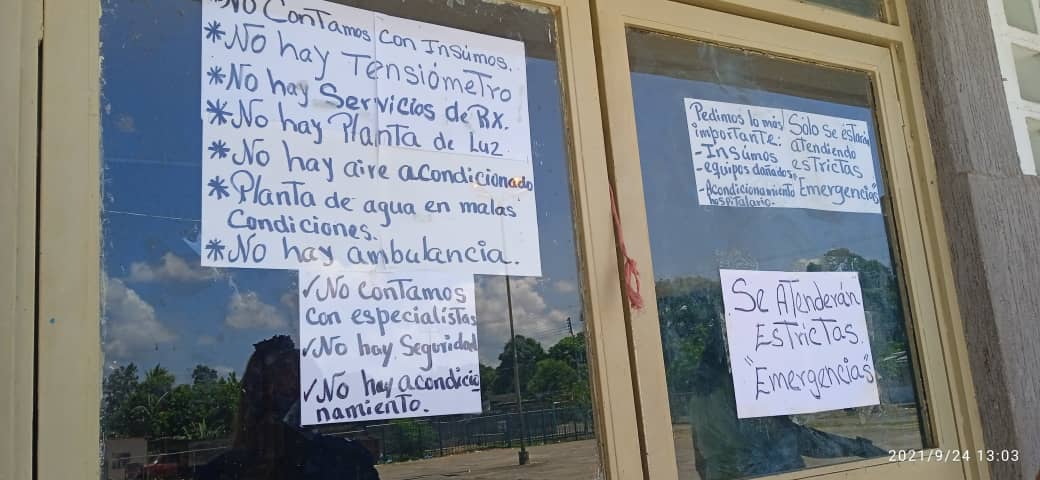 *No Contamos con Insumos.
*No hay Tensiómetro
*No hay Servicios de RX.
*No hay Planta de Luz
*No hay aire acondicionado
*Planta de agua en malas
Condiciones.
*No hay ambulancia.
✓No contamos
con especialistas
✓No hay Seguridad
✓No hay acondicio
namiento.
Pedimos lo más
importante:
-Insumos
-equipos dañados.
-Acondicionamiento
hospitalario.
Sólo se estarán
atendiendo
estrictas
"Emergencias"
Se Atenderán
Estrictas.
"Emergencias"
2021/9/24 13:03